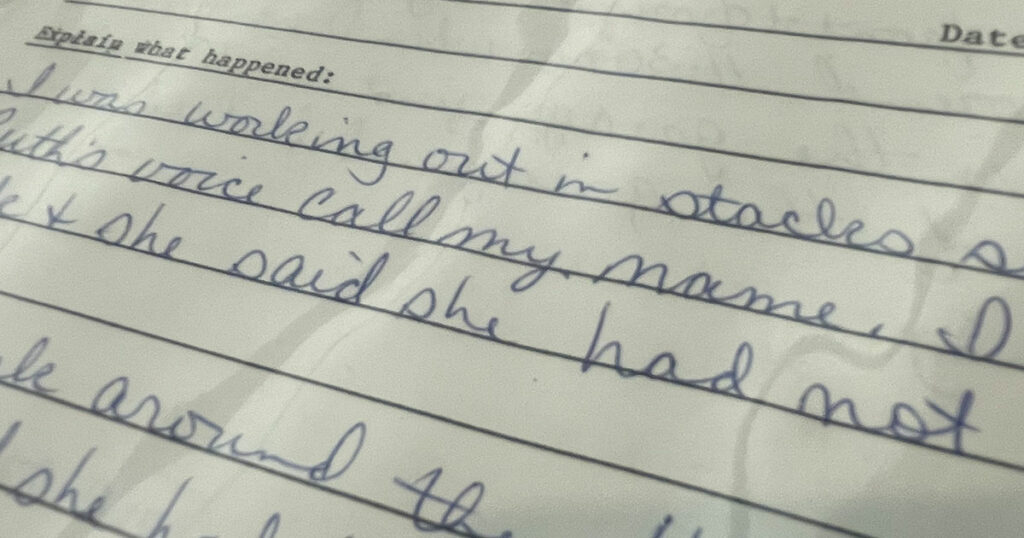 Date
Explain what happened:
I was working out in stacks
Ruth's voice call my name. I
& she said she had not
around
she